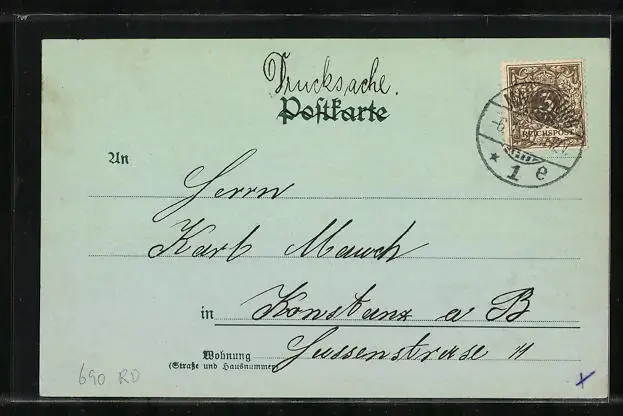 Drucksache.
Postkarte
3
REICHSPOST
1 e
An
Herrn
Karl Mauch
in Konstanz a B
Wohnung
(Straße und Hausnummer)
Hussenstrasse 11
690 RD
x